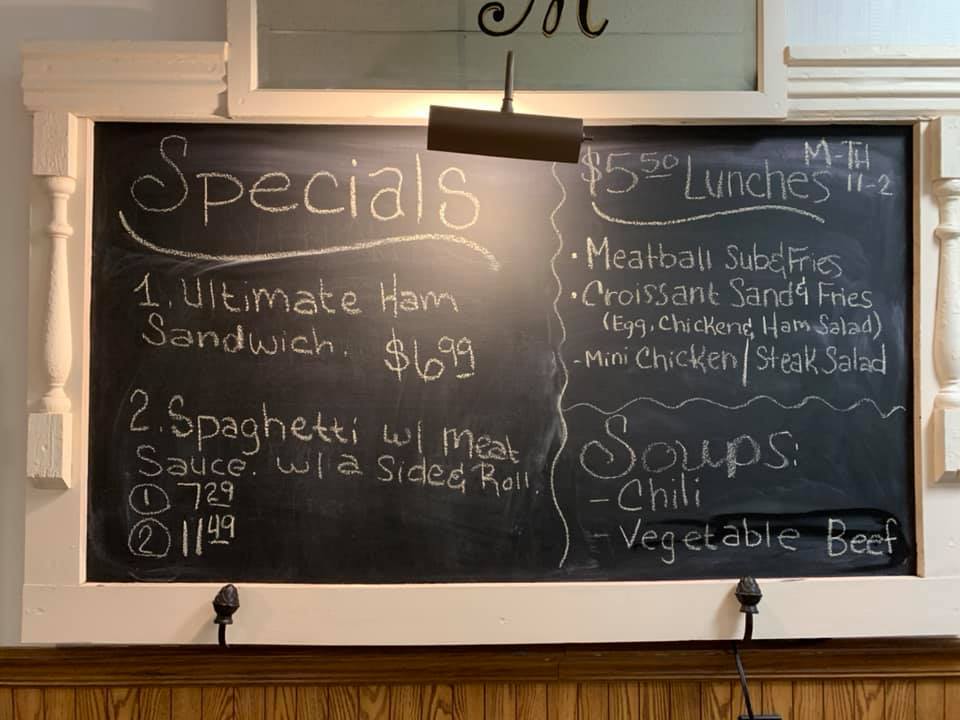 M
Specials
1. Ultimate Ham
Sandwich. $6.99
2. Spaghetti w/ Meat
Sauce. w/ a Side & Roll.
① 7.29
② 11.49
$5.50 Lunches M-TH
11-2
• Meatball Sub & Fries
• Croissant Sand & Fries
(Egg, Chicken & Ham Salad)
- Mini Chicken / Steak Salad
Soups:
- Chili
- Vegetable Beef